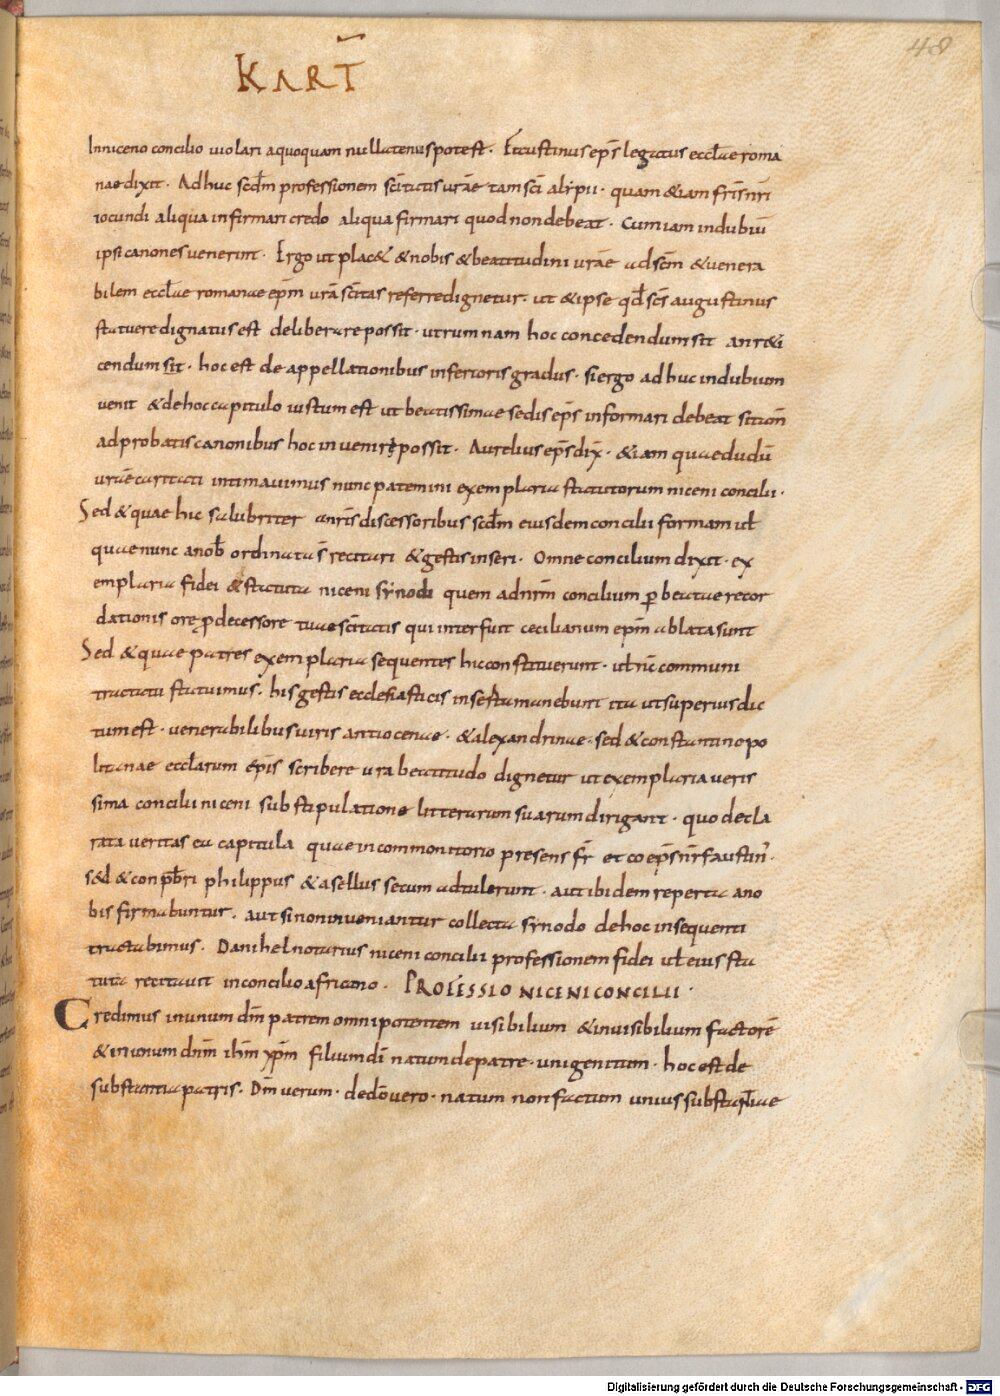 48
KART̄
In niceno concilio uiolari a quoquam nullatenus potest · Et faustinus ep̄s legatus eccl̄ae roma
nae dixit · Adhuc scd̄m professionem sc̄itatis ur̄ae tam sc̄i alypii · quam &iam fr̄is nr̄i
iocundi aliqua infirmari credo aliqua firmari quod non debeat · Cum iam in dubiū
ipsi canones uenerint · Ergo ut plac& & nobis & beatitudini ur̄ae ad sc̄m & uenera
bilem eccl̄ae romanae ep̄m ur̄a sc̄itas referre dignetur · ut & ipse qd̄ sc̄s augustinus
statuere dignatus est deliberare possit · utrum nam hoc concedendum sit an r&i
cendum sit · hoc est de appellationibus inferioris gradus · si ergo adhuc in dubium
uenit & de hoc capitulo iustum est ut beatissimae sedis ep̄s informari debeat si tam̄
ad probatis canonibus hoc inuenire possit · Aurelius ep̄s dix̄ · &iam quae dudū
ur̄ae caritati intimauimus nunc patemini exemplaria statutorum niceni concilii ·
Sed & quae hic salubriter a nr̄is discessoribus scd̄m eiusdem concilii formam ul̄
quae nunc a nob̄ ordinata s̄ recitari & gestis inseri · Omne concilium dixit · ex
emplaria fidei & statuta niceni synodi quem ad nr̄m concilium ꝑ beatae recor
dationis ore p̄decessore tuae sc̄itatis qui interfuit cecilianum ep̄m ablata sunt
Sed & quae patres exemplaria sequentes hic constituerunt · ul̄ nc̄ communi
tractatu statuimus · his gestis ecclesiasticis inserta manebunt ita ut superius dic
tum est · uenerabilibus uiris antiocenae · & alexandrinae · sed & constantinopo
litanae eccl̄arum ep̄is scribere ur̄a beatitudo dignetur ut exemplaria ueris
sima concilii niceni sub stipulatione litterarum suarum dirigant · quo decla
rata ueritas ea capitula quae in commonitorio presens fr̄ et coep̄s nr̄ faustin̄ ·
s&d & conpb̄ri philippus & asellus secum adtulerunt · aut ibidem reperta a no
bis firmabuntur · aut si non inueniantur collecta synodo de hoc in sequenti
tractabimus · Danihel notarius niceni concilii professionem fidei ul̄ eius sta
tuta recitauit in concilio africano · PROFESSIO NICENI CONCILII ·
Credimus in unum dm̄ patrem omnipotentem uisibilium & inuisibilium factorē
& in unum dnm̄ ih̄m xp̄m filium di̅ natum de patre · unigenitum · hoc est de
substantia patris · Dm̄ uerum · de dō uero · natum non factum unius substantiae
Digitalisierung gefördert durch die Deutsche Forschungsgemeinschaft - DFG